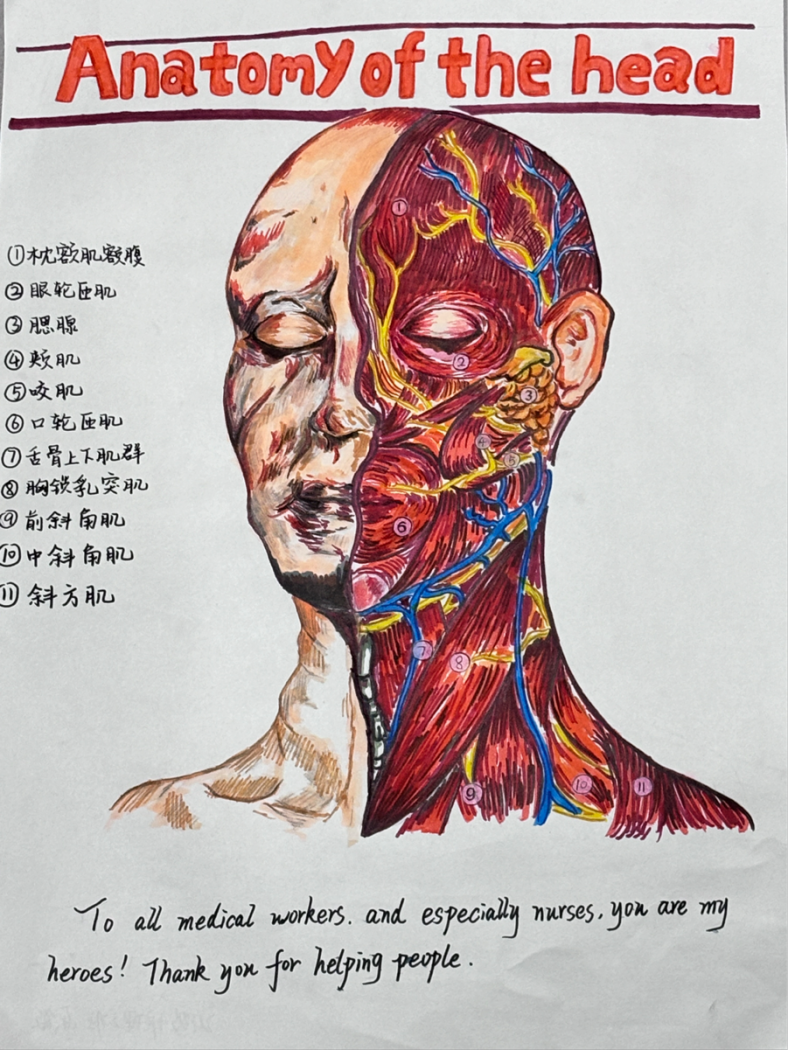 Anatomy of the head
①枕额肌额腹
②眼轮匝肌
③腮腺
④颊肌
⑤咬肌
⑥口轮匝肌
⑦舌骨上下肌群
⑧胸锁乳突肌
⑨前斜角肌
⑩中斜角肌
⑪斜方肌
①
②
③
④
⑤
⑥
⑦
⑧
⑨
⑩
⑪
To all medical workers. and especially nurses, you are my
heroes! Thank you for helping people.